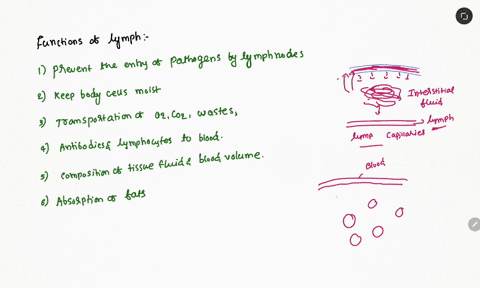 Functions of lymph:-
1) Prevent the entry of pathogens by lymphnodes
2) Keep body cells moist
3) Transportation of O2, CO2, wastes,
4) Antibodies & lymphocytes to blood.
5) Composition of tissue fluid & blood volume.
6) Absorption of fats
Interstitial
fluid
lymph
lymp Capillaries
Blood